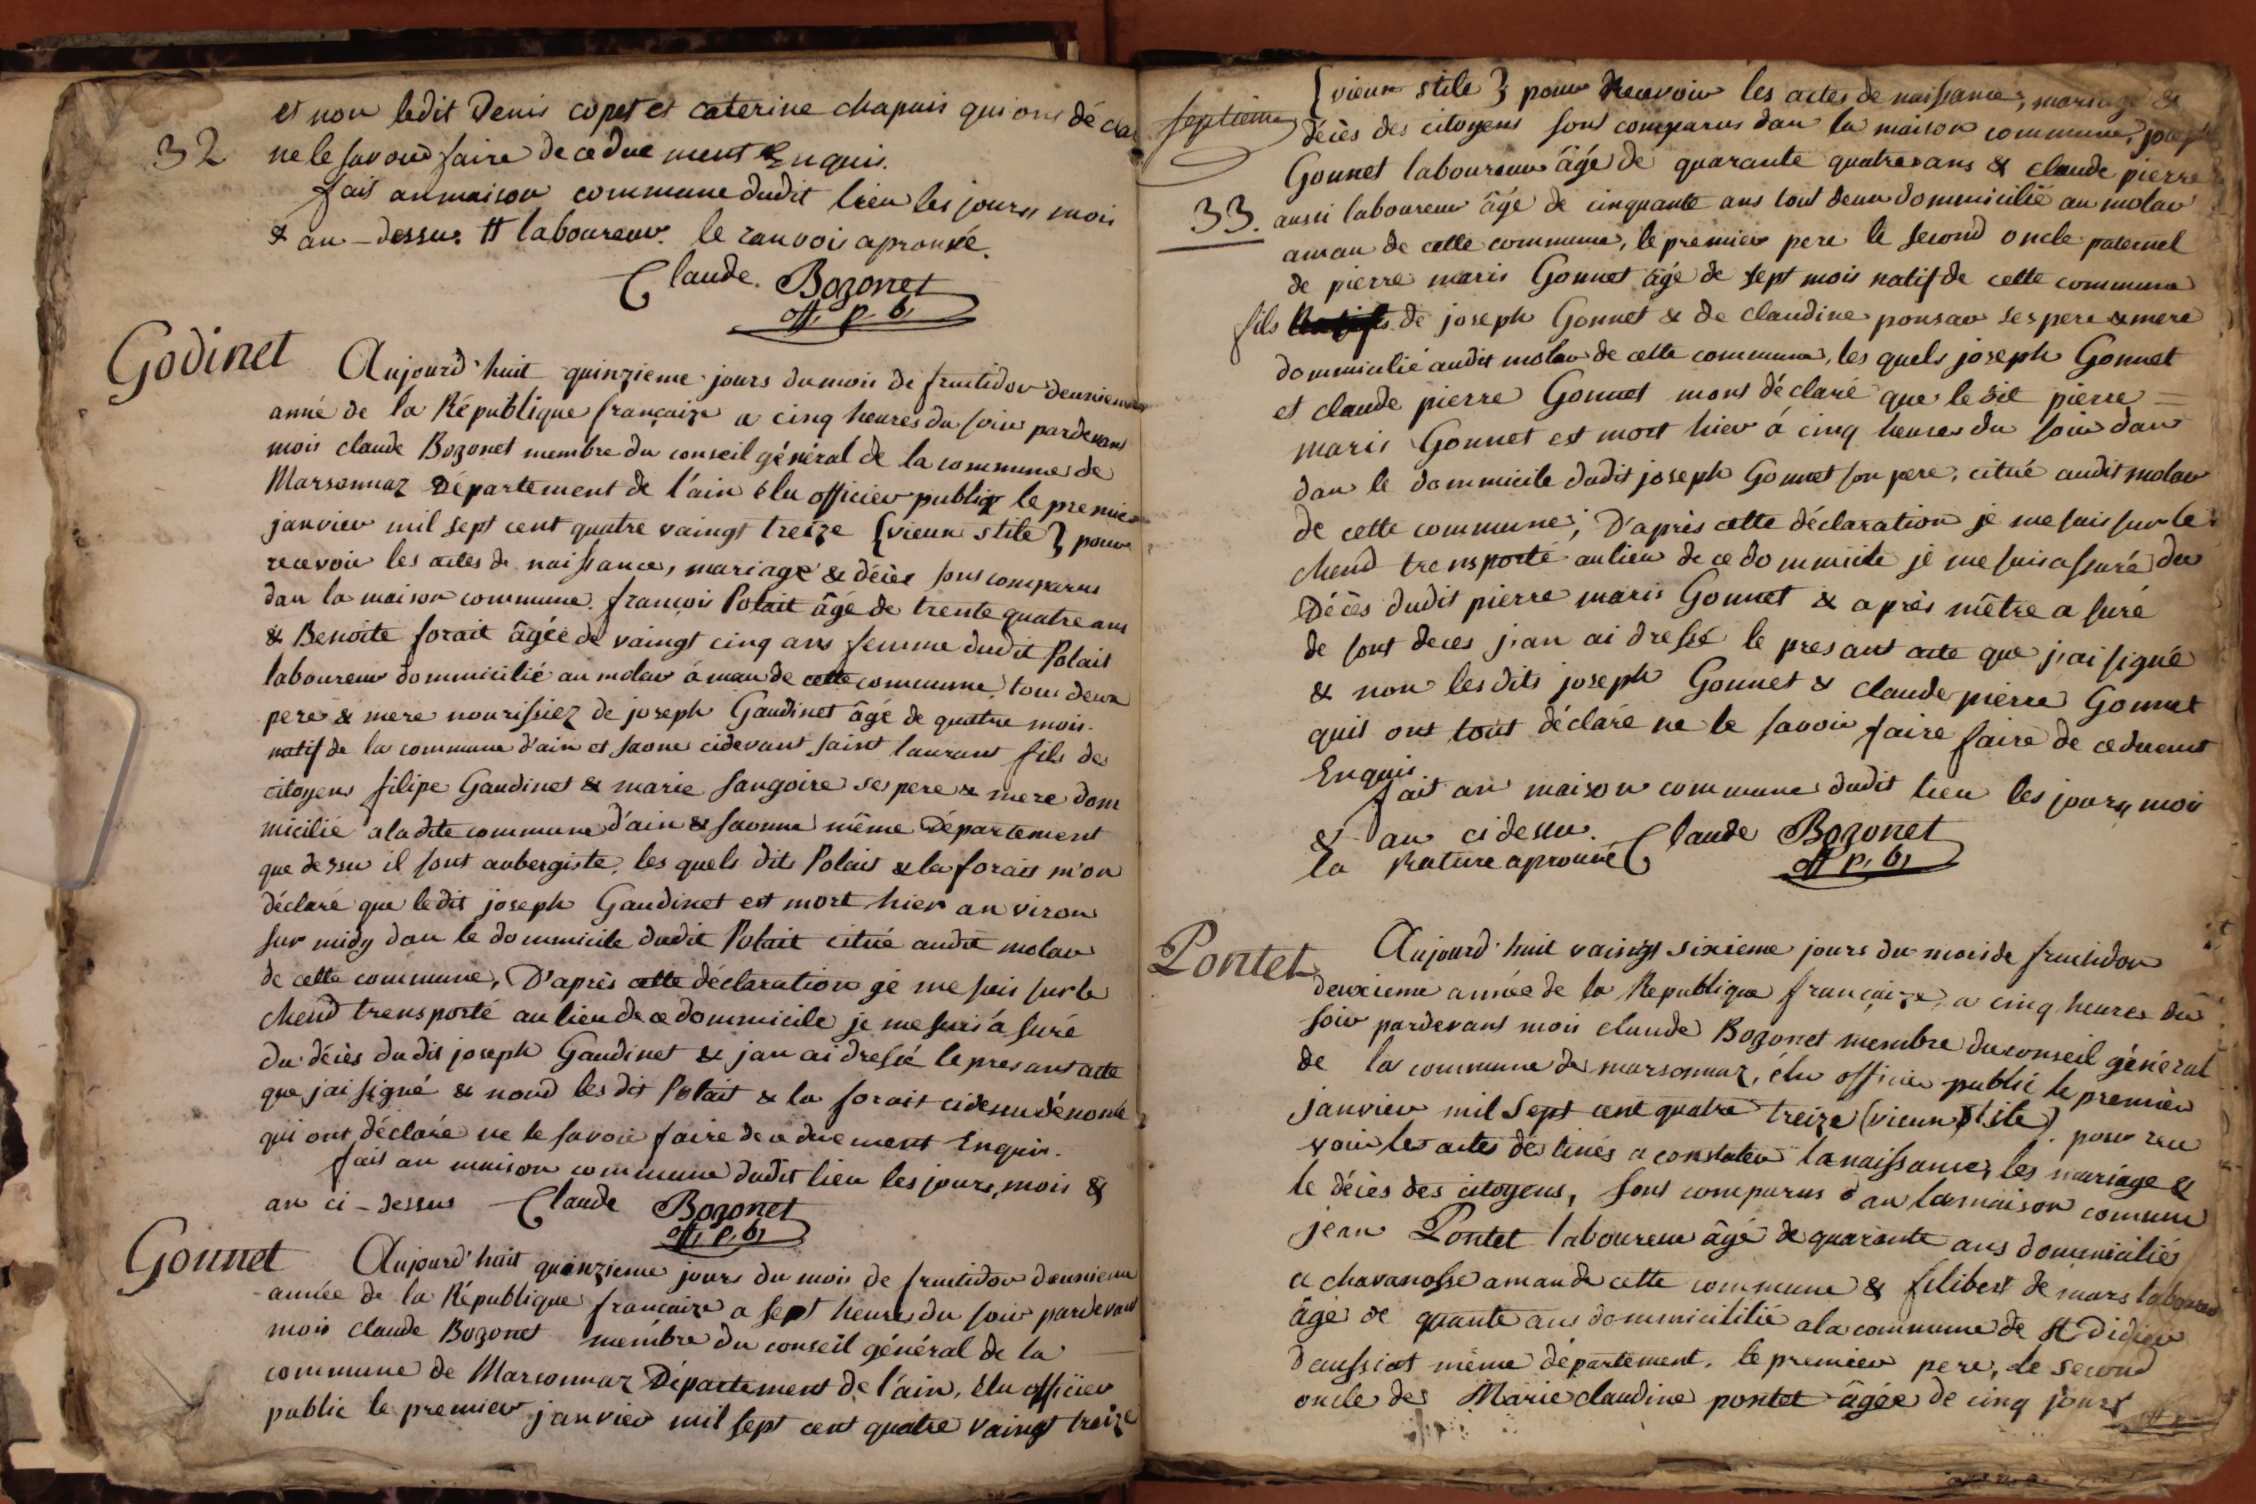 32
et non ledit Denis copet et caterine chapuis qui ont déclaré
ne le savoir faire de ce due ment Enquis.
fait an maison commune dudit lieu les jours mois
& an - dessu. # laboureur. le ranvois aprouvé.
Claude. Bozonet
off. p. b.
Godinet
Aujourd'huit quinzieme jours du mois de fructidor deuxieme
anné de la République françaize a cinq heures du soir pardevant
moi claude Bozonet membre du conseil général de la commune de
Marsonnaz Département de l'ain élu officier public le premier
janvier mil sept cent quatre vaingt treize {vieux stile} pour
recevoir les actes de naissances, mariage & décès sont comparus
dan la maison commune. françois Polait âgé de trente quatre ans
& Benoite forait âgée de vaingt cinq ans femme dudit Polait
laboureur dommicilié au molar aman de cette commune, tous deux
pere & mere nourissiez de joseph Gaudinet âgé de quatre mois.
natif de la commune d'ain et saone cidevant saint laurant fils des
citoyens filipe Gaudinet & marie sangoire ses pere & mere dom
micilié a ladite commune d'ain & saonne même Département
que dessu il sont aubergiste, les quels dits Polait & la forait m'on
déclaré que ledit joseph Gaudinet est mort hier anviron
sur midy dan le dommicile dudit Polait citué audit molar
de cette commune, D'après cette déclaration je me suis surle
chend transporté au lieu de ce dommicile je me suis a suré
du décès dudit joseph Gaudinet & j'an ai dressé le presant acte
que j'ai signé & nond les dit Polait & la forait cidessu dénomé
qui ont déclaré ne le savoir faire de ce duement Enquis.
fait an maison commune dudit lieu les jours, mois &
an ci - dessus Claude Bozonet
off. p. b,
Gonnet
Aujourd'huit quinzieme jours du mois de fructidor deuxieme
année de la République françaize a sept heures du soir pardevant
moi claude Bozonet membre du conseil général de la
commune de Marsonnaz Département de l'ain, élu officier
public le premier janvier mil sept cent quatre vaingt treize
septieme
{vieux stile} pour recevoir les actes de naissance, mariage &
décès des citoyens sont comparus dan la maison commune, joseph
Gonnet laboureur âgé de quarante quatre ans & claude pierre
33.
aussi laboureur âgé de cinquante ans tout deux dommicilié au molar
aman de cette commune, le premier pere le second oncle paternel
de pierre maris Gonnet âgé de sept mois natif de cette commune
fils de joseph Gonnet & de claudine ponsar ses pere & mere
dommicilié audit molar de cette commune, les quels joseph Gonnet
et claude pierre Gonnet mont déclaré que le dit pierre
maris Gonnet est mort hier á cinq heures du soir dan
dan le dommicile dudit joseph Gonnet son pere, citué audit molar
de cette commune, D'après cette déclaration je me suis sur le
chend transporté au lieu de ce dommicile je me suis assuré du
décès dudit pierre maris Gonnet & après mêtre a suré
de sont deces j'an ai dressé le presant acte que j'ai signé
& non lesdits joseph Gonnet & claude pierre Gonnet
quil ont tout déclaré ne le savoir faire faire de ce duement
Enquis.
fait an maison commune dudit lieu les jours, mois
& an cidessu. Claude Bozonet
la Rature aprouvé off p. b,
Pontet
Aujourd'huit vaingt sixieme jours du mois de fructidor
deuxieme année de la République françaize, a cinq heures du
soir pardevant moi claude Bozonet membre du conseil général
de la commune de marsonnaz, élu officier public le premier
janvier mil sept cent quatre treize (vieux stile) pour rece
voir les actes destinés a constater la naissance, les mariage &
le décès des citoyens, sont comparus dan la maison comune
jean Pontet laboureur âgé de quarante ans dommiciliés
a chavanosse aman de cette commune & filibert de mars laboureur
âgé de quante ans dommicililié a la commune de St Didier
daussiat même département, le premier pere, le second
oncle des Marie claudine pontet âgée de cinq jours